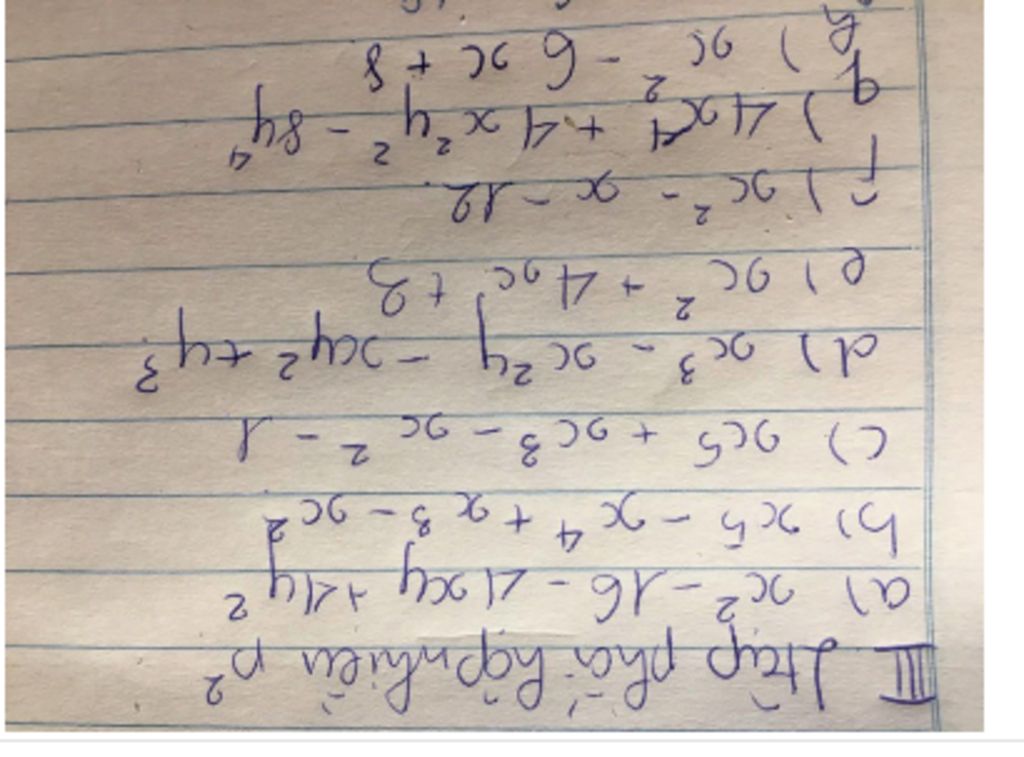 III Ptđt phối hợp nhiều p²
a) x² - 16 - 4xy + 4y²
b) x⁵ - x⁴ + x³ - x²
c) x⁵ + x³ - x² - 1
d) x³ - x²y - xy² + y³
e) x² + 4x + 3
f) x² - x - 12
g) 4x⁴ + 4x²y² - 8y⁴
h) x² - 6x + 8